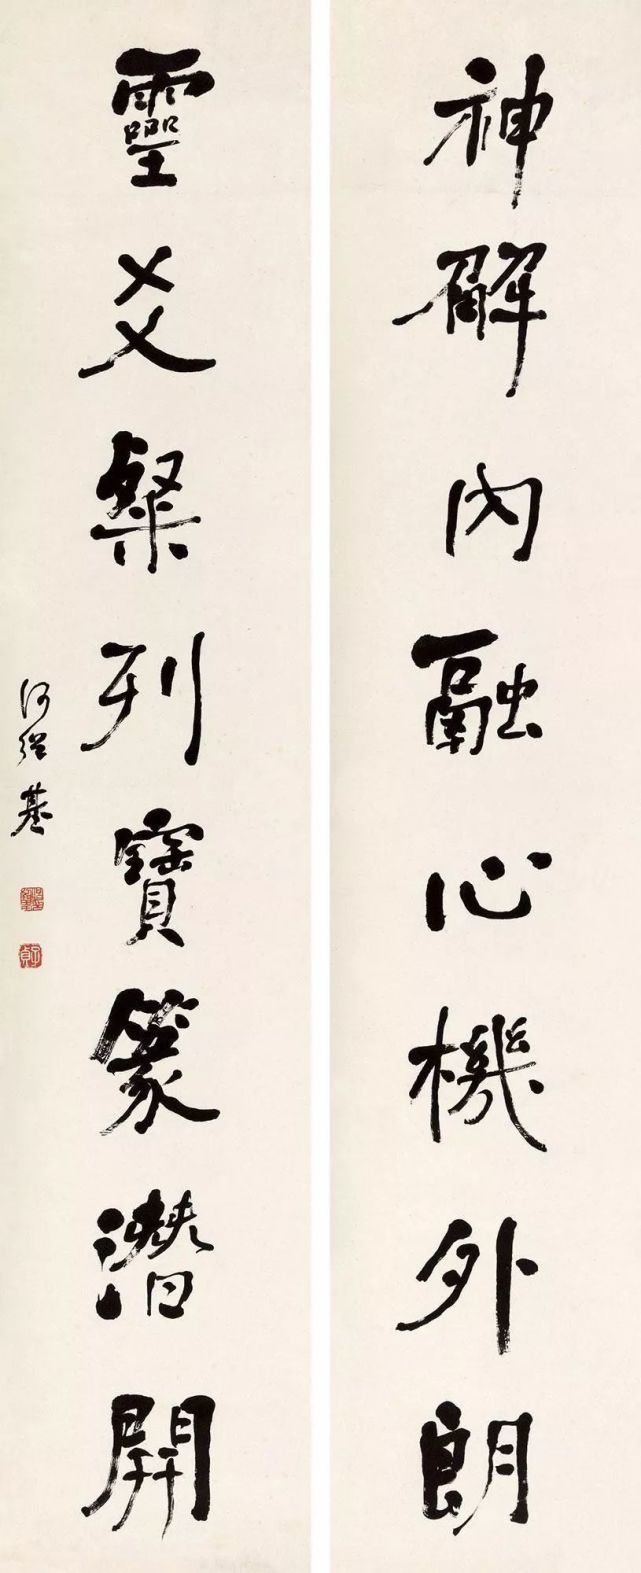 神解內融心機外朗
靈爻粲列寶篆潛開
何紹基